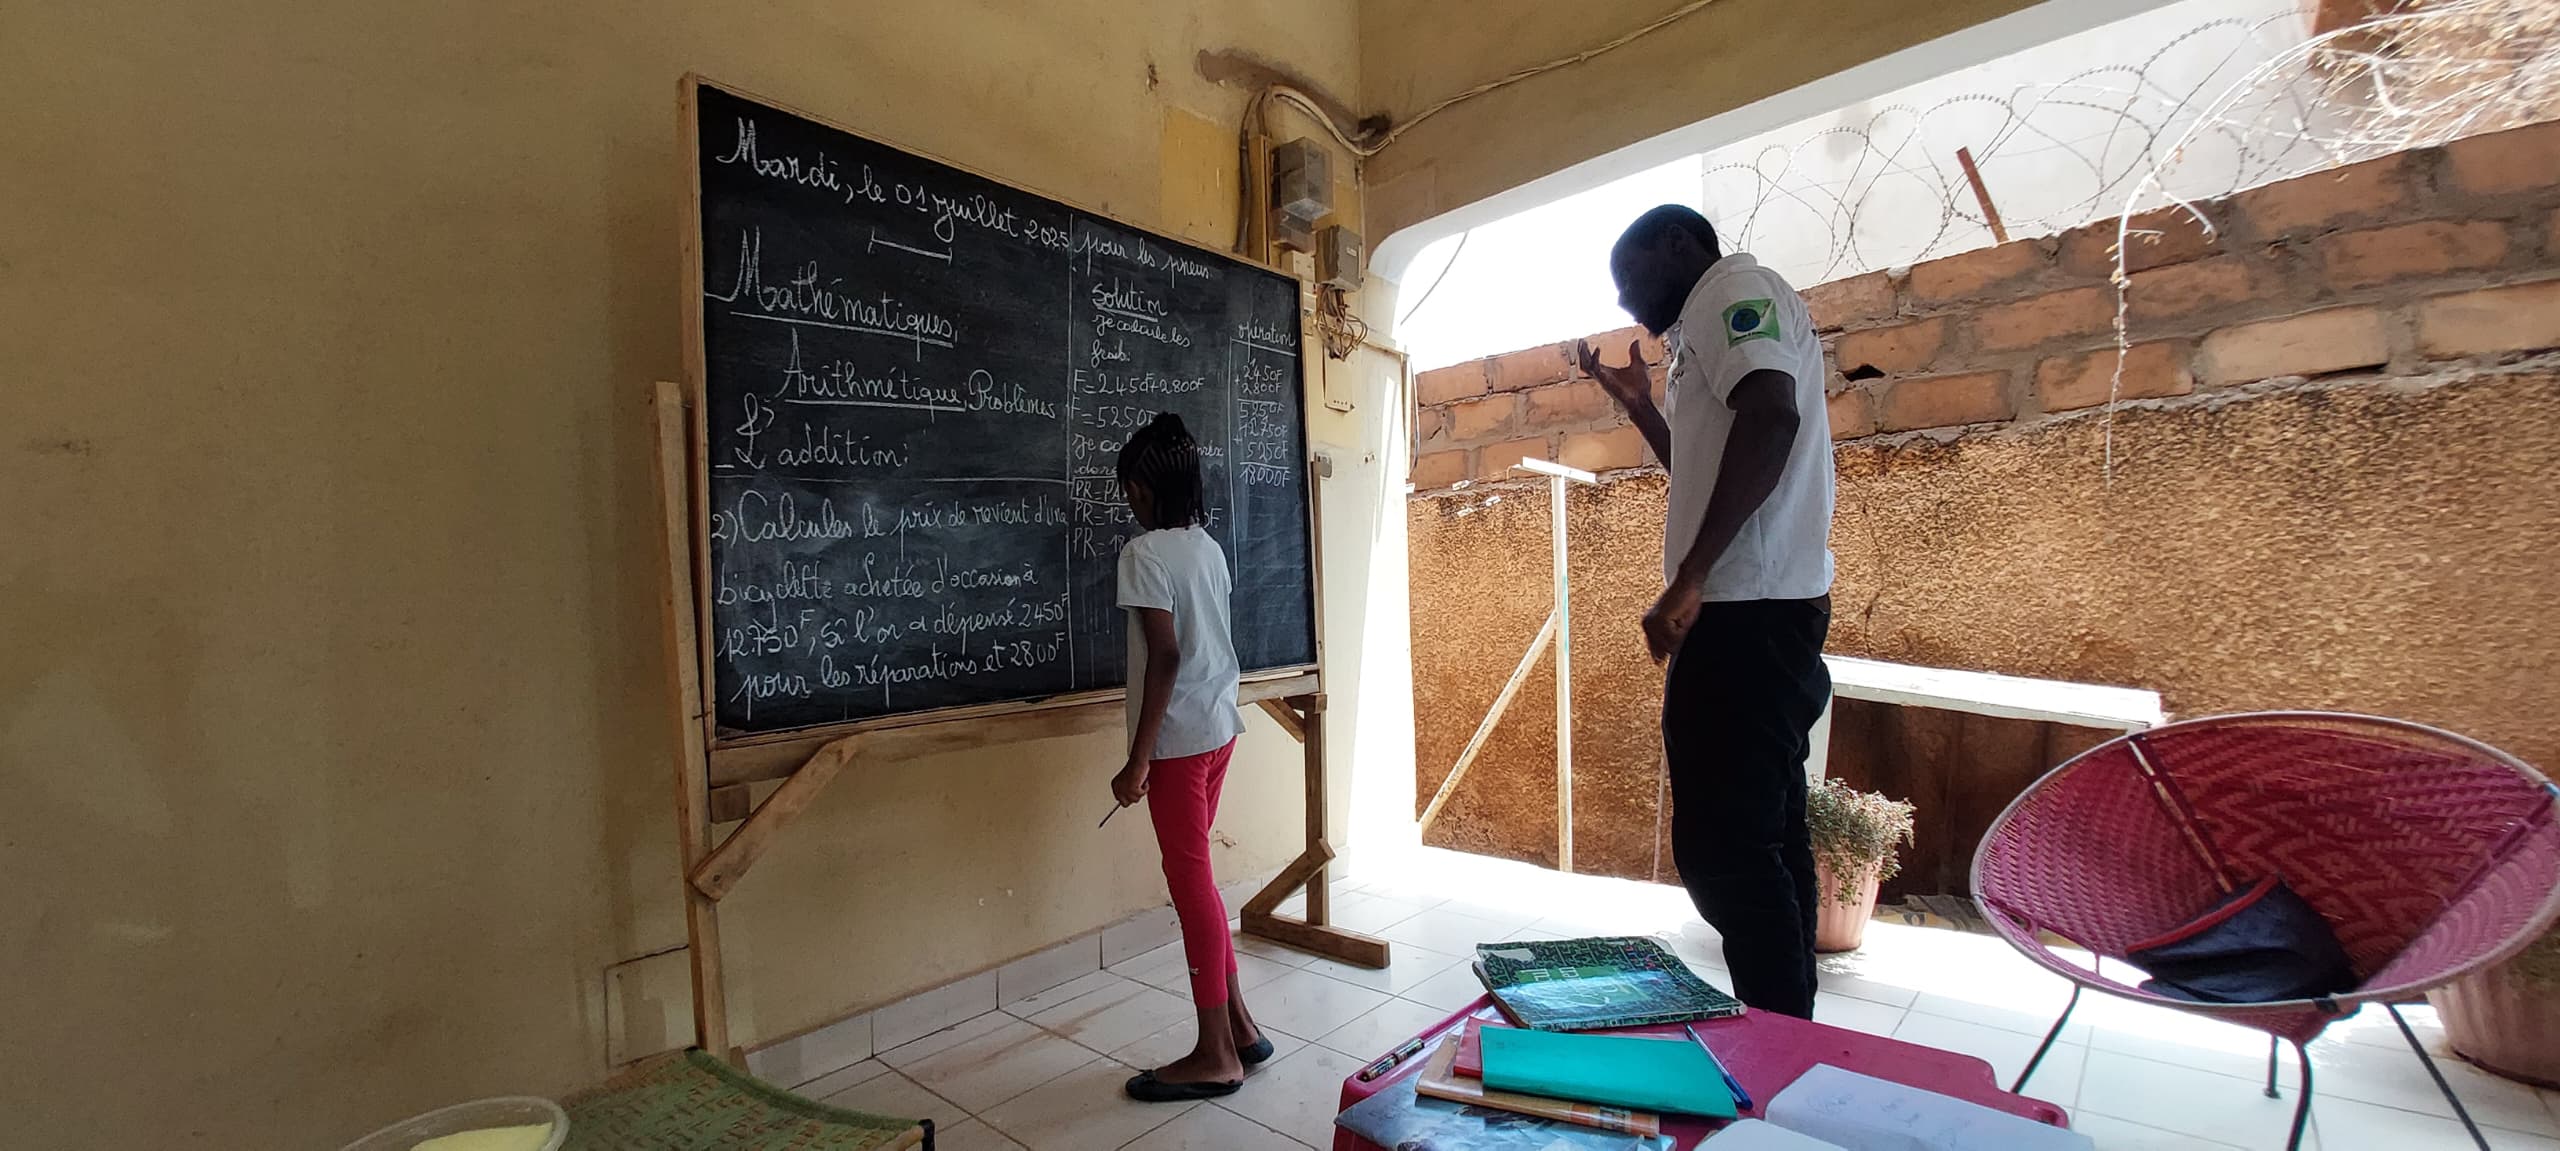 Mardi, le 01 juillet 2025
Mathématiques;
Arithmétique; Problèmes
L'addition:
2) Calcules le prix de revient d'une
bicyclette achetée d'occasion à
12.750F, si l'on a dépensé 2450F
pour les réparations et 2800F
pour les pneus.
Solution
Je calcule les
frais:
F=2450F+2800F
F=5250F
Je
PR=PA
PR=12.7
PR=18
opération
2450F
+2800F
5250F
12750F
+5250F
18000F